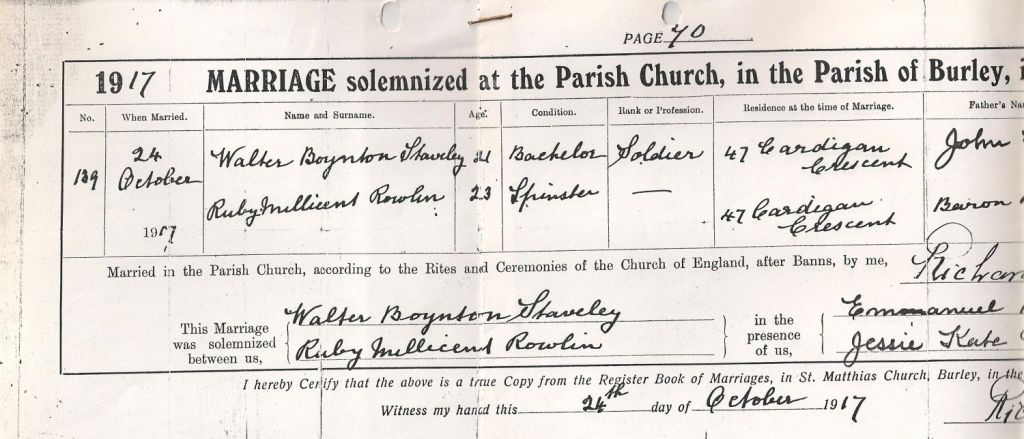 PAGE 70
1917 MARRIAGE solemnized at the Parish Church, in the Parish of Burley,
No. When Married. Name and Surname. Age. Condition. Rank or Profession. Residence at the time of Marriage. Father's
139 24 October 1917 Walter Boynton Staveley Bachelor Soldier 47 Cardigan Crescent John
Ruby Millicent Rowlin 23 Spinster — 47 Cardigan Crescent Baron
Married in the Parish Church, according to the Rites and Ceremonies of the Church of England, after Banns, by me,
This Marriage was solemnized between us, Walter Boynton Staveley in the presence of us, Emmanuel
Ruby Millicent Rowlin Jessie Kate
I hereby Certify that the above is a true Copy from the Register Book of Marriages, in St. Matthias Church, Burley, in the
Witness my hand this 24th day of October 1917